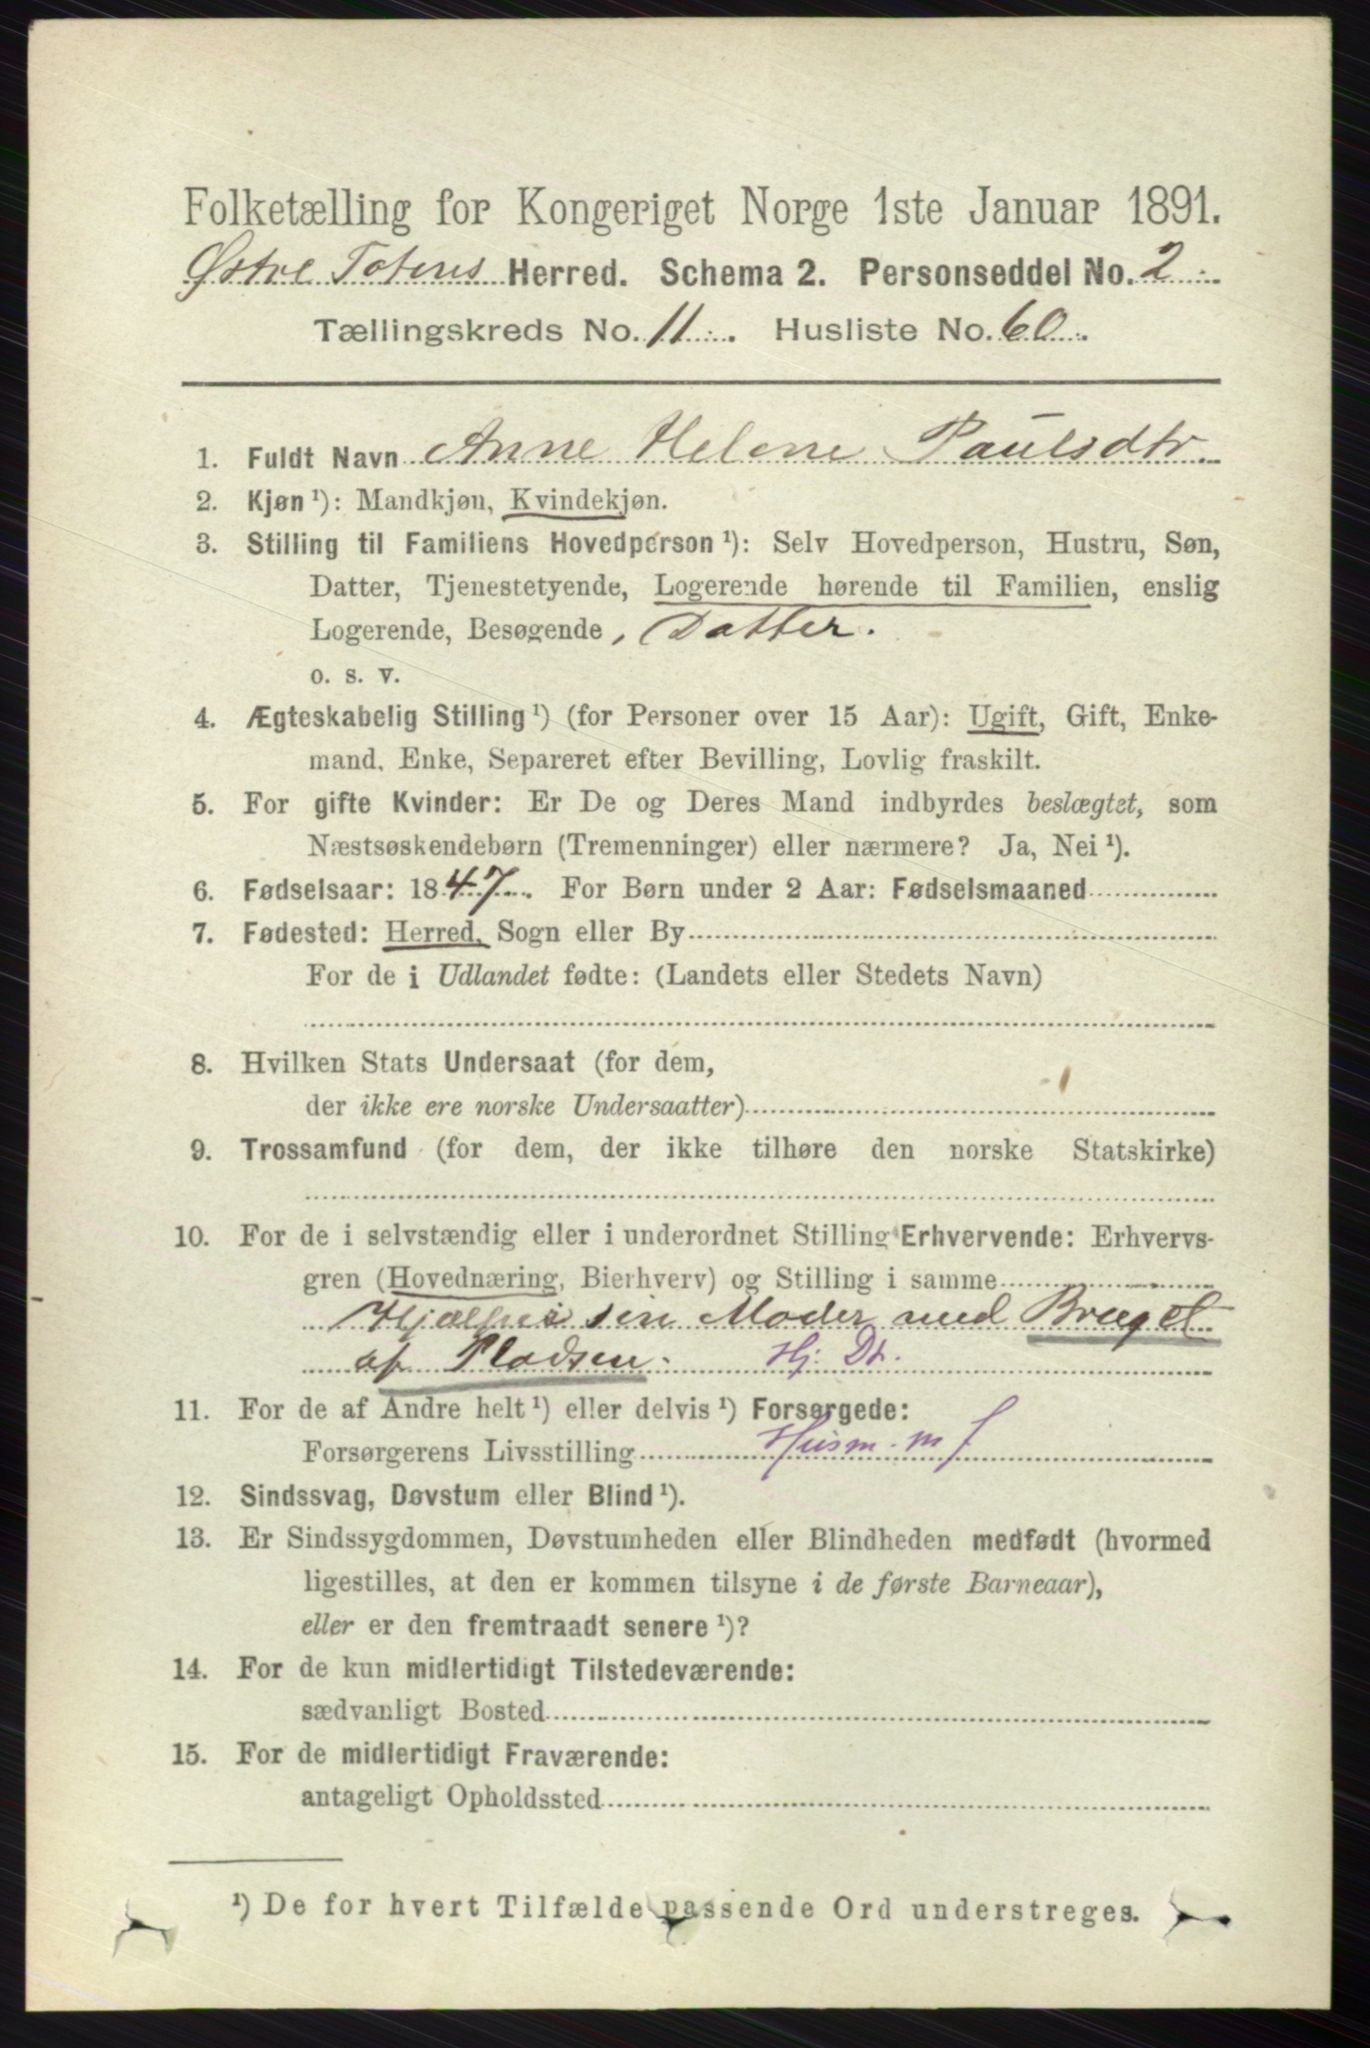 Folketælling for Kongeriget Norge 1ste Januar 1891.
Østre Totens Herred. Schema 2. Personseddel No. 2
Tællingskreds No. 11. Husliste No. 60.
1. Fuldt Navn Anne Helene Paulsdtr.
2. Kjøn ¹): Mandkjøn, Kvindekjøn.
3. Stilling til Familiens Hovedperson ¹): Selv Hovedperson, Hustru, Søn,
Datter, Tjenestetyende, Logerende hørende til Familien, enslig
Logerende, Besøgende, Datter.
o. s. v.
4. Ægteskabelig Stilling ¹) (for Personer over 15 Aar): Ugift, Gift, Enke-
mand, Enke, Separeret efter Bevilling, Lovlig fraskilt.
5. For gifte Kvinder: Er De og Deres Mand indbyrdes beslægtet, som
Næstsøskendebørn (Tremenninger) eller nærmere? Ja, Nei ¹).
6. Fødselsaar: 1847. For Børn under 2 Aar: Fødselsmaaned
7. Fødested: Herred, Sogn eller By
For de i Udlandet fødte: (Landets eller Stedets Navn)
8. Hvilken Stats Undersaat (for dem,
der ikke ere norske Undersaatter)
9. Trossamfund (for dem, der ikke tilhøre den norske Statskirke)
10. For de i selvstændig eller i underordnet Stilling Erhvervende: Erhvervs-
gren (Hovednæring, Bierhverv) og Stilling i samme
Hjælper sin Moder med Bruget
af Pladsen. Hj. Dt.
11. For de af Andre helt ¹) eller delvis ¹) Forsørgede:
Forsørgerens Livsstilling Husm. m j
12. Sindssvag, Døvstum eller Blind ¹).
13. Er Sindssygdommen, Døvstumheden eller Blindheden medfødt (hvormed
ligestilles, at den er kommen tilsyne i de første Barneaar),
eller er den fremtraadt senere ¹)?
14. For de kun midlertidigt Tilstedeværende:
sædvanligt Bosted
15. For de midlertidigt Fraværende:
antageligt Opholdssted
¹) De for hvert Tilfælde passende Ord understreges.